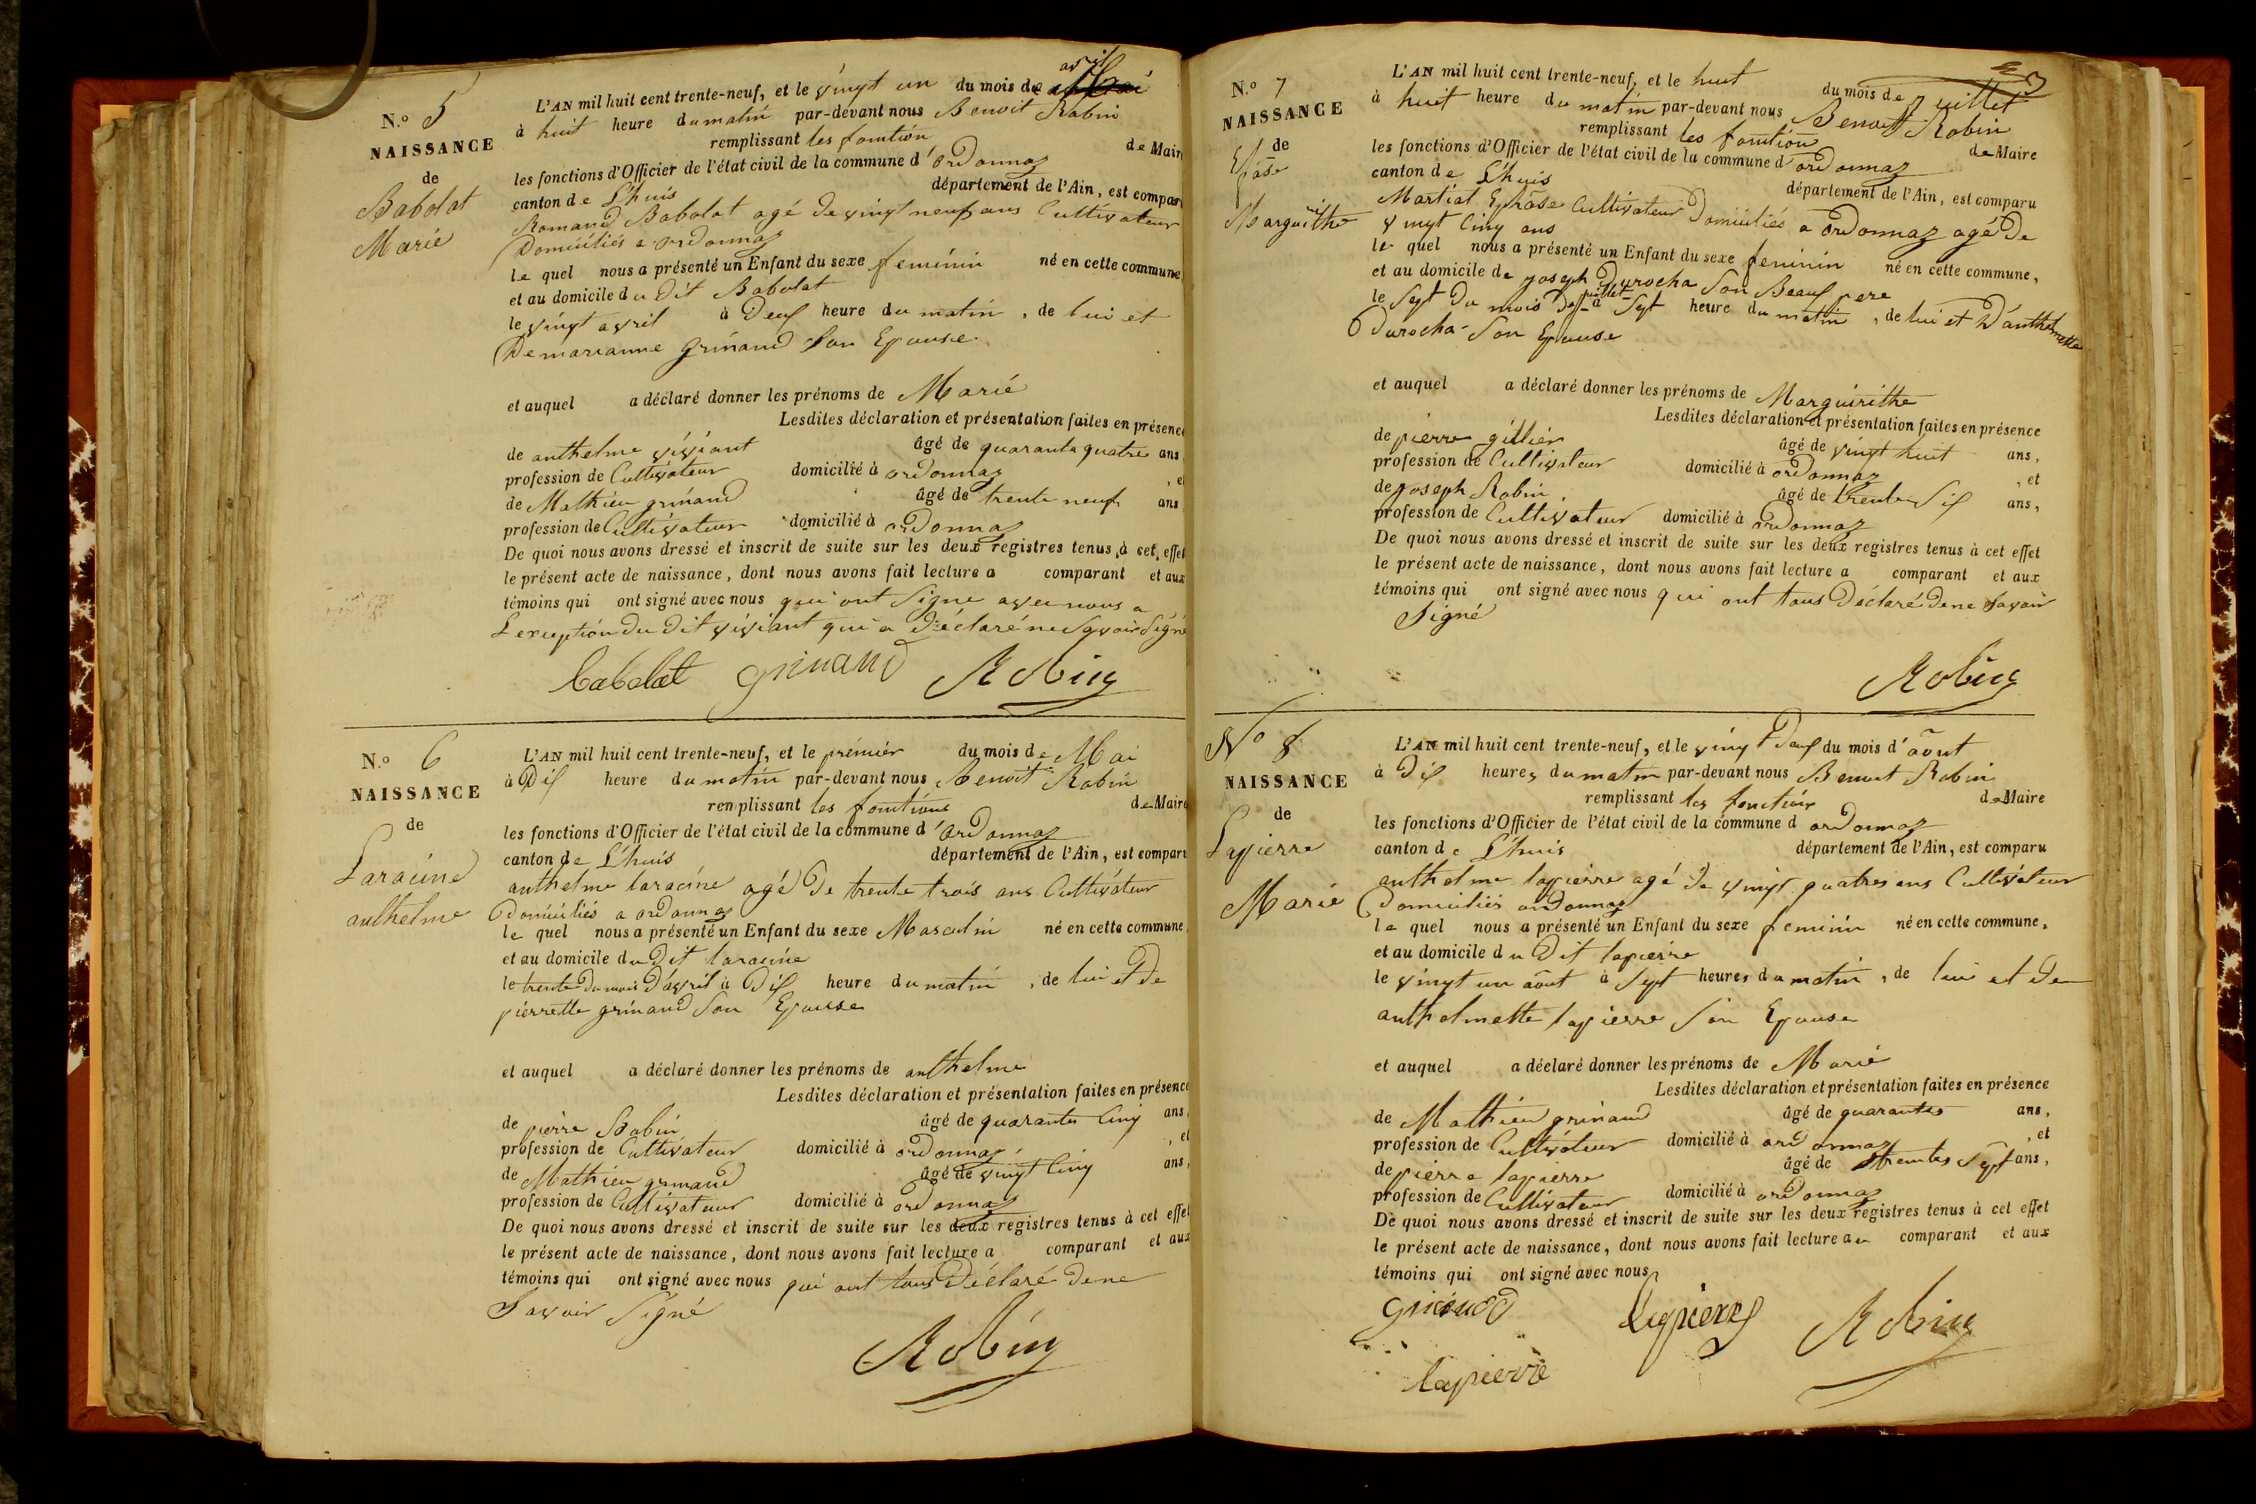 N.o 5
NAISSANCE
de
Babolat
Marie
L'AN mil huit cent trente-neuf, et le vingt un du mois de avril
à huit heure du matin par-devant nous Benoit Robin
remplissant les fonction de Maire
les fonctions d'Officier de l'état civil de la commune d'ordonnaz
canton de L'huis département de l'Ain, est comparu
Romand Babolat agé de vingt neuf ans Cultivateur
Domiciliés a ordonnaz
le quel nous a présenté un Enfant du sexe feminin né en cette commune
et au domicile du Dit Babolat
le vingt avril à Deux heure du matin, de lui et
De marianne grinand Son Epouse
et auquel a déclaré donner les prénoms de Marie
Lesdites déclaration et présentation faites en présence
de anthelme viviant âgé de quarante quatre ans
profession de Cultivateur domicilié à ordonnaz, et
de Mathieu grinand âgé de trente neuf ans
profession de Cultivateur domicilié à ordonnaz
De quoi nous avons dressé et inscrit de suite sur les deux registres tenus à cet effet
le présent acte de naissance, dont nous avons fait lecture a comparant et aux
témoins qui ont signé avec nous qui ont Signe avec nous a
L'exception du Dit viviant qui a Déclaré ne Savoir Signé
babolat grinand Robin
N.o 6
NAISSANCE
de
Laracine
anthelme
L'AN mil huit cent trente-neuf, et le prémiér du mois de Mai
à Dix heure du matin par-devant nous Benoit Robin
remplissant les fonctions de Maire
les fonctions d'Officier de l'état civil de la commune d'ordonnaz
canton de L'huis département de l'Ain, est comparu
anthelme laracine agé De trente trois ans Cultivateur
Domiciliés a ordonnaz
le quel nous a présenté un Enfant du sexe Masculin né en cette commune
et au domicile du Dit laracine
le trente Du mois D'avril à Dix heure du matin, de lui et De
pierrette grinand Son Epouse
et auquel a déclaré donner les prénoms de anthelme
Lesdites déclaration et présentation faites en présence
de pierre Babin âgé de quarante Cinq ans
profession de Cultivateur domicilié à ordonnaz, et
de Mathieu grinand âgé de vingt Cinq ans
profession de Cultivateur domicilié à ordonnaz
De quoi nous avons dressé et inscrit de suite sur les deux registres tenus à cet effet
le présent acte de naissance, dont nous avons fait lecture a comparant et aux
témoins qui ont signé avec nous qui ont tous Déclaré De ne
Savoir Signé
Robin
3
N.o 7
NAISSANCE
de
Marguirithe
L'AN mil huit cent trente-neuf, et le huit du mois de Juillet
à huit heure du matin par-devant nous Benoit Robin
remplissant les fonction de Maire
les fonctions d'Officier de l'état civil de la commune d'ordonnaz
canton de L'huis département de l'Ain, est comparu
Martiat Ephose Cultivateur Domiciliés a ordonnaz agé De
vingt Cinq ans
le quel nous a présenté un Enfant du sexe feminin né en cette commune,
et au domicile de joseph Durocha Son Beaux pere
le Sept Du mois De juillet à Sept heure du matin, de lui et D'anthelmette
Durocha Son Epouse
et auquel a déclaré donner les prénoms de Marguirithe
Lesdites déclaration et présentation faites en présence
de pierre gillier âgé de vingt huit ans,
profession de Cultivateur domicilié à ordonnaz, et
de joseph Robin âgé de trente Six ans,
profession de Cultivateur domicilié à ordonnaz
De quoi nous avons dressé et inscrit de suite sur les deux registres tenus à cet effet
le présent acte de naissance, dont nous avons fait lecture a comparant et aux
témoins qui ont signé avec nous qui ont tous Déclaré De ne Savoir
Signé
Robin
No 8
NAISSANCE
de
Lapierre
Marie
L'AN mil huit cent trente-neuf, et le vingt Deux du mois d'août
à Dix heures du matin par-devant nous Benoit Robin
remplissant les fonction de Maire
les fonctions d'Officier de l'état civil de la commune d ordonnaz
canton de L'huis département de l'Ain, est comparu
anthelme lapierre agé de vingt quatres ans Cultivateur
Domiciliés ordonnaz
le quel nous a présenté un Enfant du sexe feminin né en cette commune,
et au domicile du Dit lapierre
le vingt un août à Sept heures du matin, de lui et De
anthelmette lapierre Son Epouse
et auquel a déclaré donner les prénoms de Marie
Lesdites déclaration et présentation faites en présence
de Mathieu grinand âgé de quarantes ans,
profession de Cultivateur domicilié à ordonnaz, et
de pierre lapierre âgé de trentes Sept ans,
profession de Cultivateur domicilié à ordonnaz
De quoi nous avons dressé et inscrit de suite sur les deux registres tenus à cet effet
le présent acte de naissance, dont nous avons fait lecture au comparant et aux
témoins qui ont signé avec nous
grinand lapierre Robin
lapierre